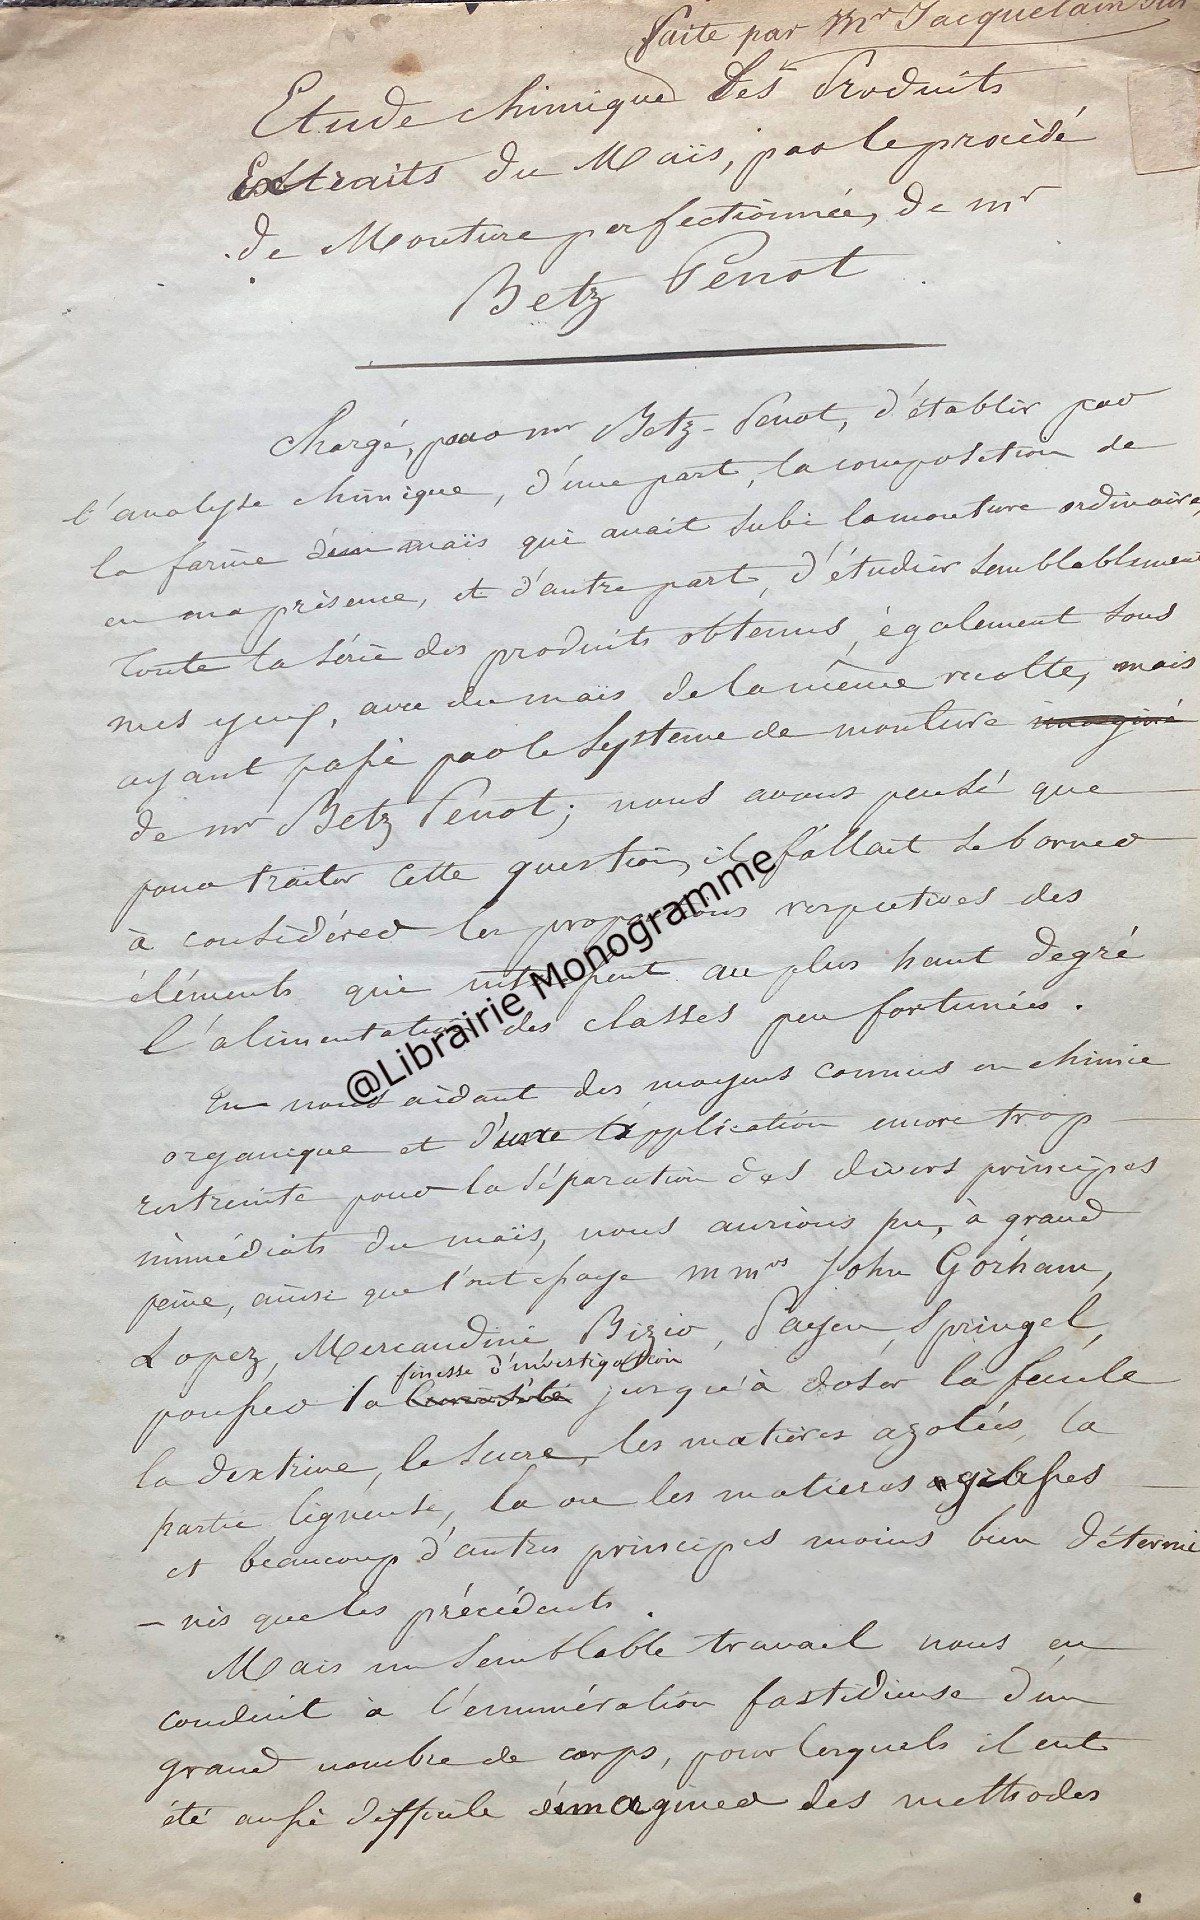 faite par Mr Jacquelain sur
Etude chimique des Produits
Extraits du Maïs, par le procédé
de Mouture perfectionnée, de mr
Betz Penot
Chargé, par mr Betz-Penot, d'établir par
l'analyse chimique, d'une part, la composition de
la farine d'un maïs qui avait subi la mouture ordinaire,
en ma présence, et d'autre part, d'étudier semblablement
toute la série des produits obtenus, également sous
mes yeux, avec du maïs de la même récolte, mais
ayant passé par le systeme de mouture imaginé
de mr Betz Penot; nous avons pensé que
pour traiter cette question, il fallait se borner
à considérer les proportions respectives des
éléments qui intéressent au plus haut degré
l'alimentation des classes peu fortunées.
En nous aidant des moyens connus en chimie
organique et d'une application encore trop
restreinte pour la séparation des divers principes
immédiats du maïs, nous aurions pu, à grand
peine, ainsi que l'ont essayé mmrs John Gorham,
Lopez, Mercandini Bizio, Payen, Springel,
finesse d'investigation
pousser la curiosité jusqu'à doser la fécule
la dextrine, le sucre, les matières azotées, la
partie ligneuse, la ou les matieres grasses
et beaucoup d'autres principes moins bien détermi
- nés que les précédents.
Mais un semblable travail nous eu
conduit à l'enumération fastidieuse d'un
grand nombre de corps, pour lesquels il eut
été aussi difficile d'imaginer des methodes
@Librairie Monogramme